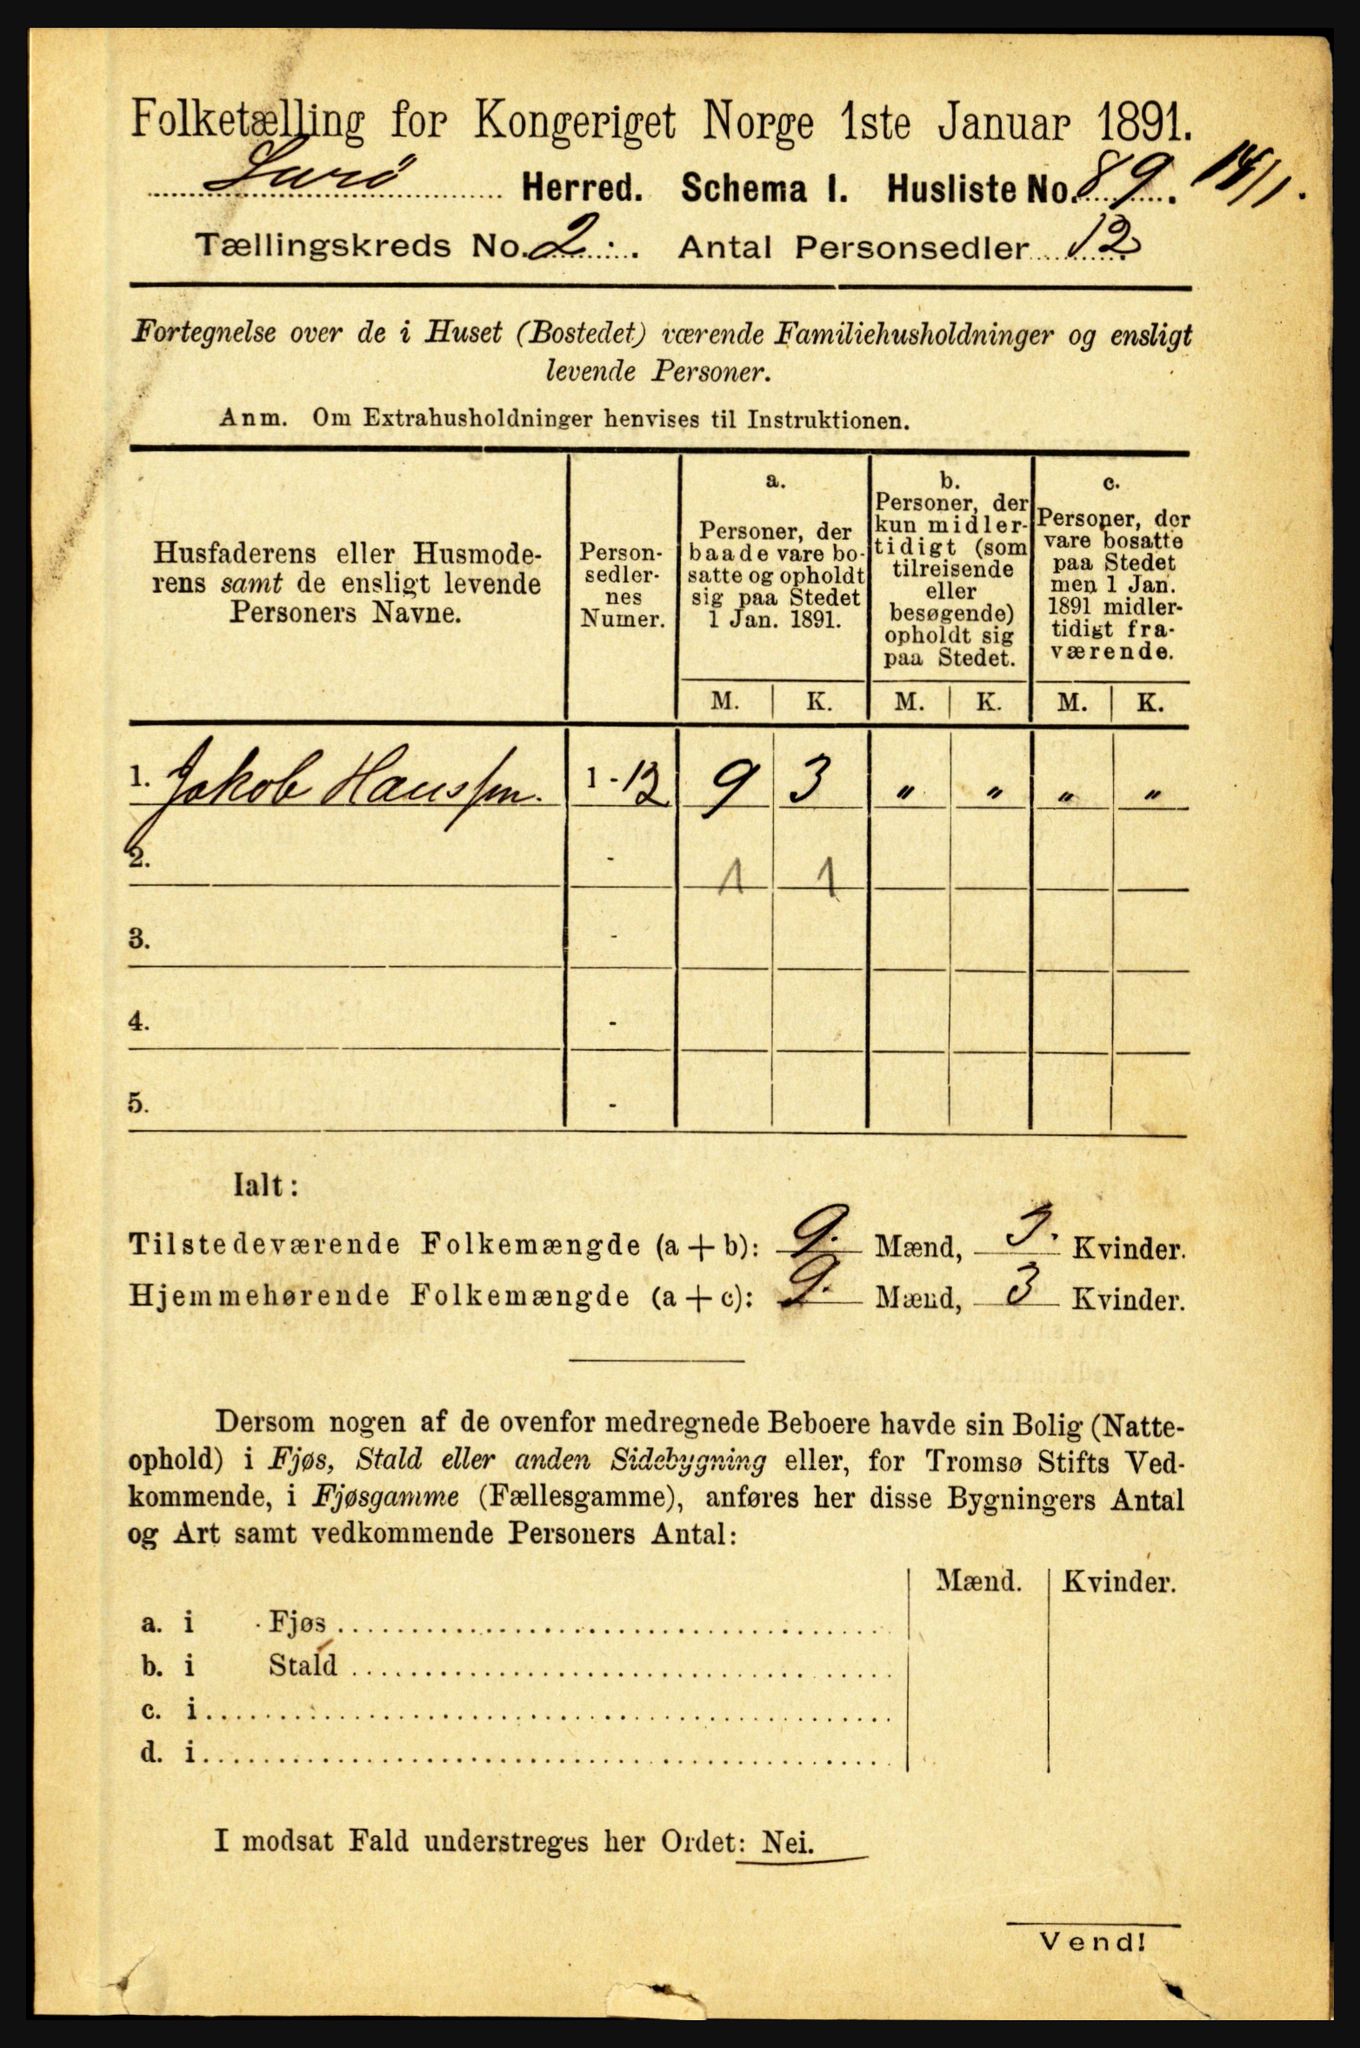 Folketælling for Kongeriget Norge 1ste Januar 1891.
Lurö Herred. Schema I. Husliste No. 89. 14/1.
Tællingskreds No. 2. Antal Personsedler 12
Fortegnelse over de i Huset (Bostedet) værende Familiehusholdninger og ensligt
levende Personer.
Anm. Om Extrahusholdninger henvises til Instruktionen.
Husfaderens eller Husmode-
rens samt de ensligt levende
Personers Navne.
Person-
sedler-
nes
Numer.
a.
Personer, der
baade vare bo-
satte og opholdt
sig paa Stedet
1 Jan. 1891.
b.
Personer, der
kun midler-
tidigt (som
tilreisende
eller
besøgende)
opholdt sig
paa Stedet.
c.
Personer, der
vare bosatte
paa Stedet
men 1 Jan.
1891 midler-
tidigt fra-
værende.
M. K. M. K. M. K.
1. Jakob Hanssen. 1 - 12 9 3 " " " "
2. - 1 1
3. -
4. -
5. -
Ialt:
Tilstedeværende Folkemængde (a + b): 9. Mænd, 3. Kvinder.
Hjemmehørende Folkemængde (a + c): 9. Mænd, 3 Kvinder.
Dersom nogen af de ovenfor medregnede Beboere havde sin Bolig (Natte-
ophold) i Fjøs, Stald eller anden Sidebygning eller, for Tromsø Stifts Ved-
kommende, i Fjøsgamme (Fællesgamme), anføres her disse Bygningers Antal
og Art samt vedkommende Personers Antal:
Mænd. Kvinder.
a. i Fjøs
b. i Stald
c. i
d. i
I modsat Fald understreges her Ordet: Nei.
Vend!